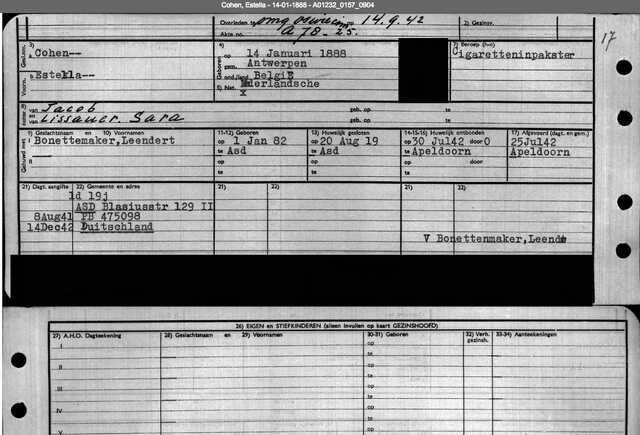 Cohen, Estella - 14-01-1888 - A01232_0157_0904
Overleden te omg. Oswiecim op 14.9.42 2) Gezinsv.
Akte no. A 78-25. 17
3) Cohen-- 4) op 14 Januari 1888 7) Beroep (h=o)
gem. Antwerpen Cigaretteninpakster
Estella-- ond./land België
5) Nat. Nederlandsche
x
van Jacob geb. op te
en
van Lissauer. Sara geb. op te
9) Geslachtsnaam en 10) Voornamen 11-12) Geboren 13) Huwelijk gesloten 14-15-16) Huwelijk ontbonden 17) Afgevoerd (dagt. en gem.)
Bonettemaker,Leendert op 1 Jan 82 op 20 Aug 19 op 30 Jul42 door O 25Jul42
te Asd te Asd te Apeldoorn Apeldoorn
II op op op door
te te te
21) Dagt. aangifte 22) Gemeente en adres 21) 22) 21) 22)
1d 19j
ASD Blasiusstr 129 II
8Aug41 PB 475098
14Dec42 Duitschland
V Bonettenmaker,Leend
26) EIGEN en STIEFKINDEREN (alleen invullen op kaart GEZINSHOOFD)
27) A.H.O. Dagteekening 28) Geslachtsnaam en 29) Voornamen 30-31) Geboren 32) Verh. gezinsh. 33-34) Aanteekeningen
I op
te
II op
te
III op
te
IV op
te
V op